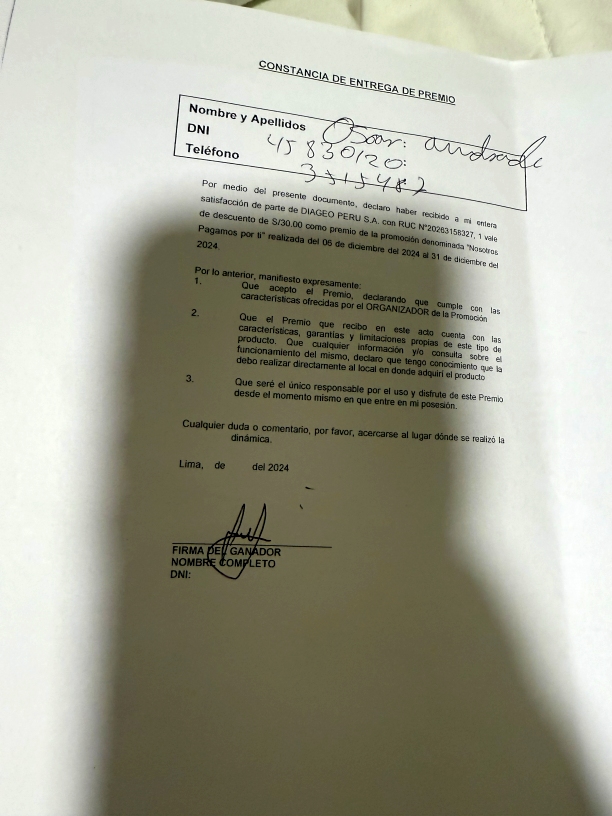 CONSTANCIA DE ENTREGA DE PREMIO
Nombre y Apellidos Oscar: andrade
DNI 45830120:
Teléfono 3315482
Por medio del presente documento, declaro haber recibido a mi entera
satisfacción de parte de DIAGEO PERU S.A. con RUC N°20263158327, 1 vale
de descuento de S/30.00 como premio de la promoción denominada "Nosotros
Pagamos por ti" realizada del 06 de diciembre del 2024 al 31 de diciembre del
2024.
Por lo anterior, manifiesto expresamente:
1. Que acepto el Premio, declarando que cumple con las
características ofrecidas por el ORGANIZADOR de la Promoción
2. Que el Premio que recibo en este acto cuenta con las
características, garantías y limitaciones propias de este tipo de
producto. Que cualquier información y/o consulta sobre el
funcionamiento del mismo, declaro que tengo conocimiento que la
debo realizar directamente al local en donde adquirí el producto
3. Que seré el único responsable por el uso y disfrute de este Premio
desde el momento mismo en que entre en mi posesión.
Cualquier duda o comentario, por favor, acercarse al lugar dónde se realizó la
dinámica.
Lima, de del 2024
FIRMA DEL GANADOR
NOMBRE COMPLETO
DNI: